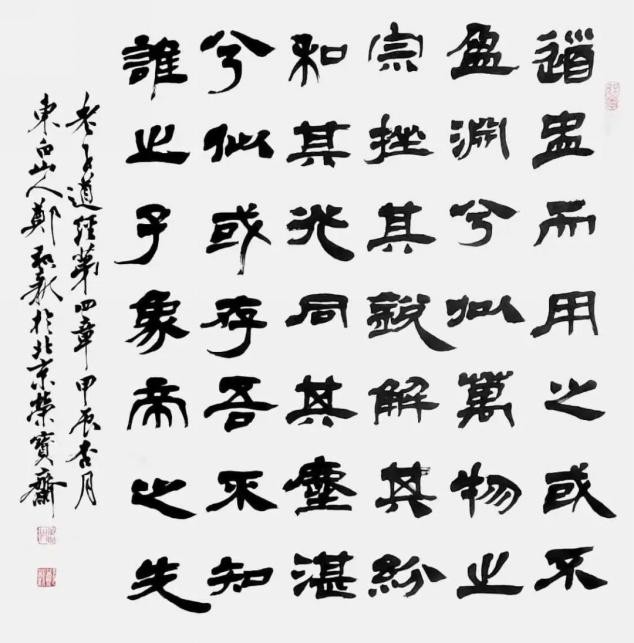 道盅而用之或不
盈淵兮似萬物之
宗挫其銳解其紛
和其光同其塵湛
兮似或存吾不知
誰之子象帝之先
老子道經第四章甲辰杏月
東白山人鄭於北京榮寶齋